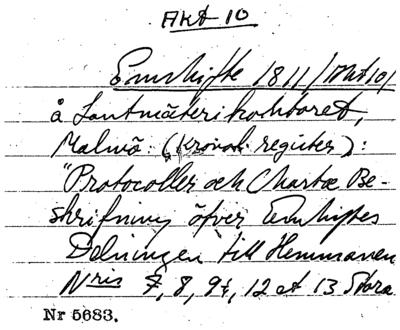 Akt 10
Enskifte 1811 (Akt 10)
å Lantmäterikontoret,
Malmö (kronol. register):
"Protocoller och Charta Be-
skrifning öfver Enskiftes
Delningen till Hemmanen
N ris 7, 8, 9½, 12 et 13 Stora
Nr 5683.